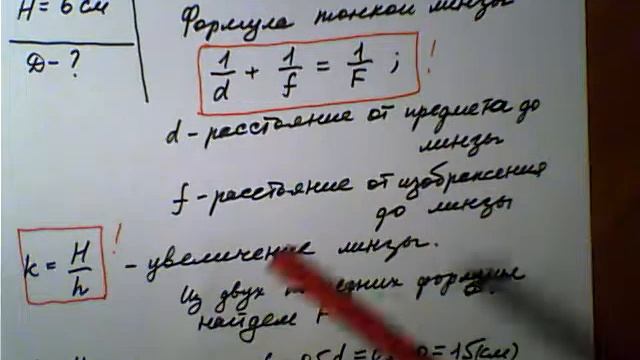 H = 6 см
Д - ?
Формула тонкой линзы
1/d + 1/f = 1/F ; !
d - расстояние от предмета до
линзы
f - расстояние от изображения
до линзы
k = H/h ! - увеличение линзы.
Из двух формул
найдем F
= 15(см)